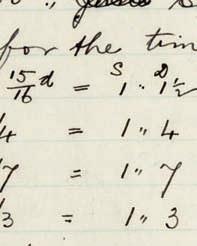 for the tim
15/16 d = 1 S „ 1½ D
/4 = 1 „ 4
/7 = 1 „ 7
/3 = 1 „ 3